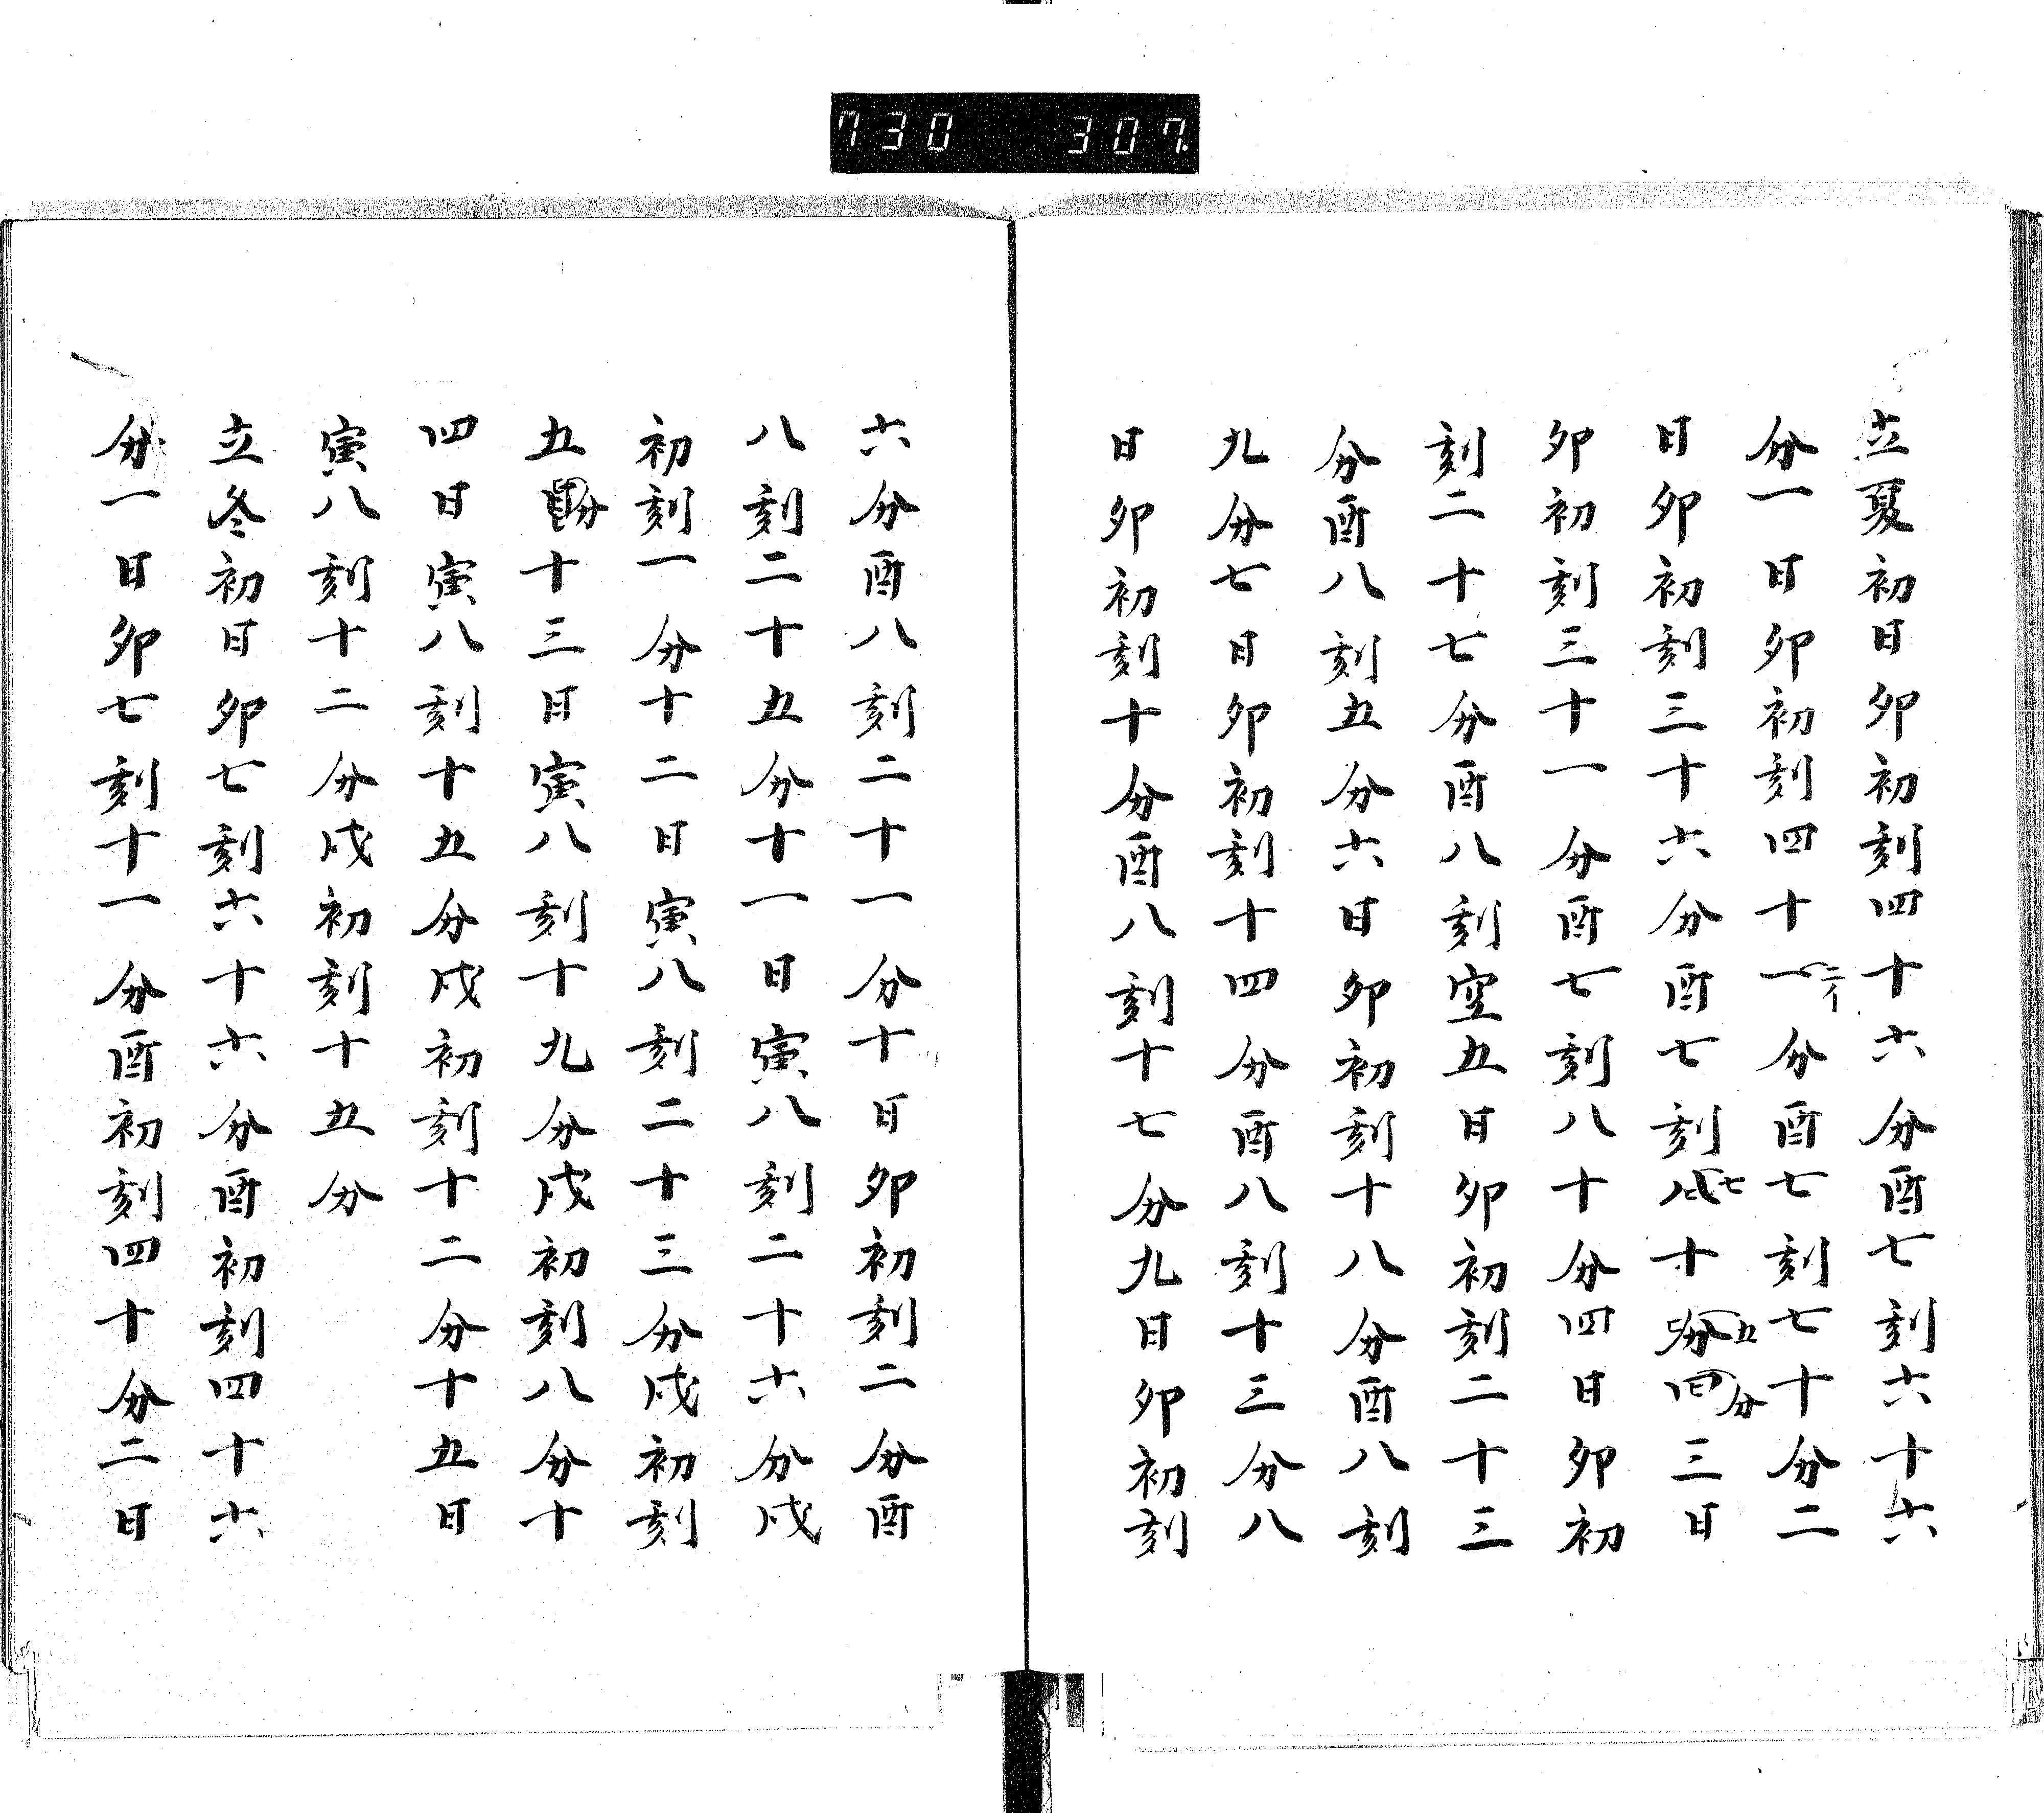 730 307
立夏初日卯初刻四十六分酉七刻六十六
分一日卯初刻四十一分酉七刻七十分二
二イ
日卯初刻三十六分酉七刻十分四三日
七
五
分
卯初刻三十一分酉七刻八十分四日卯初
刻二十七分酉八刻空五日卯初刻二十三
分酉八刻五分六日卯初刻十八分酉八刻
九分七日卯初刻十四分酉八刻十三分八
日卯初刻十分酉八刻十七分九日卯初刻
六分酉八刻二十一分十日卯初刻二分酉
八刻二十五分十一日寅八刻二十六分戌
初刻一分十二日寅八刻二十三分戌初刻
五分十三日寅八刻十九分戌初刻八分十
四日寅八刻十五分戌初刻十二分十五日
寅八刻十二分戌初刻十五分
立冬初日卯七刻六十六分酉初刻四十六
分一日卯七刻十一分酉初刻四十分二日